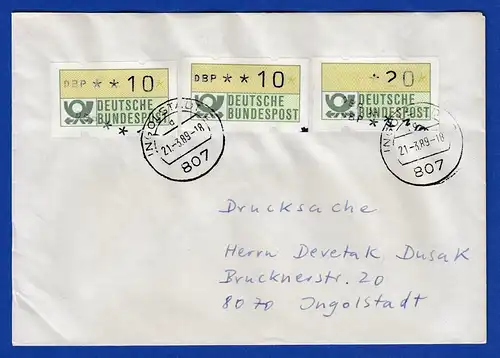 DBP * * 10
DEUTSCHE
BUNDESPOST
DBP * * 10
DEUTSCHE
BUNDESPOST
* 20
DEUTSCHE
BUNDESPOST
INGOLSTADT
21-3.89-18
807
21-3.89-18
807
Drucksache
Herrn Devetak Dusak
Brucknerstr. 20
8070 Ingolstadt